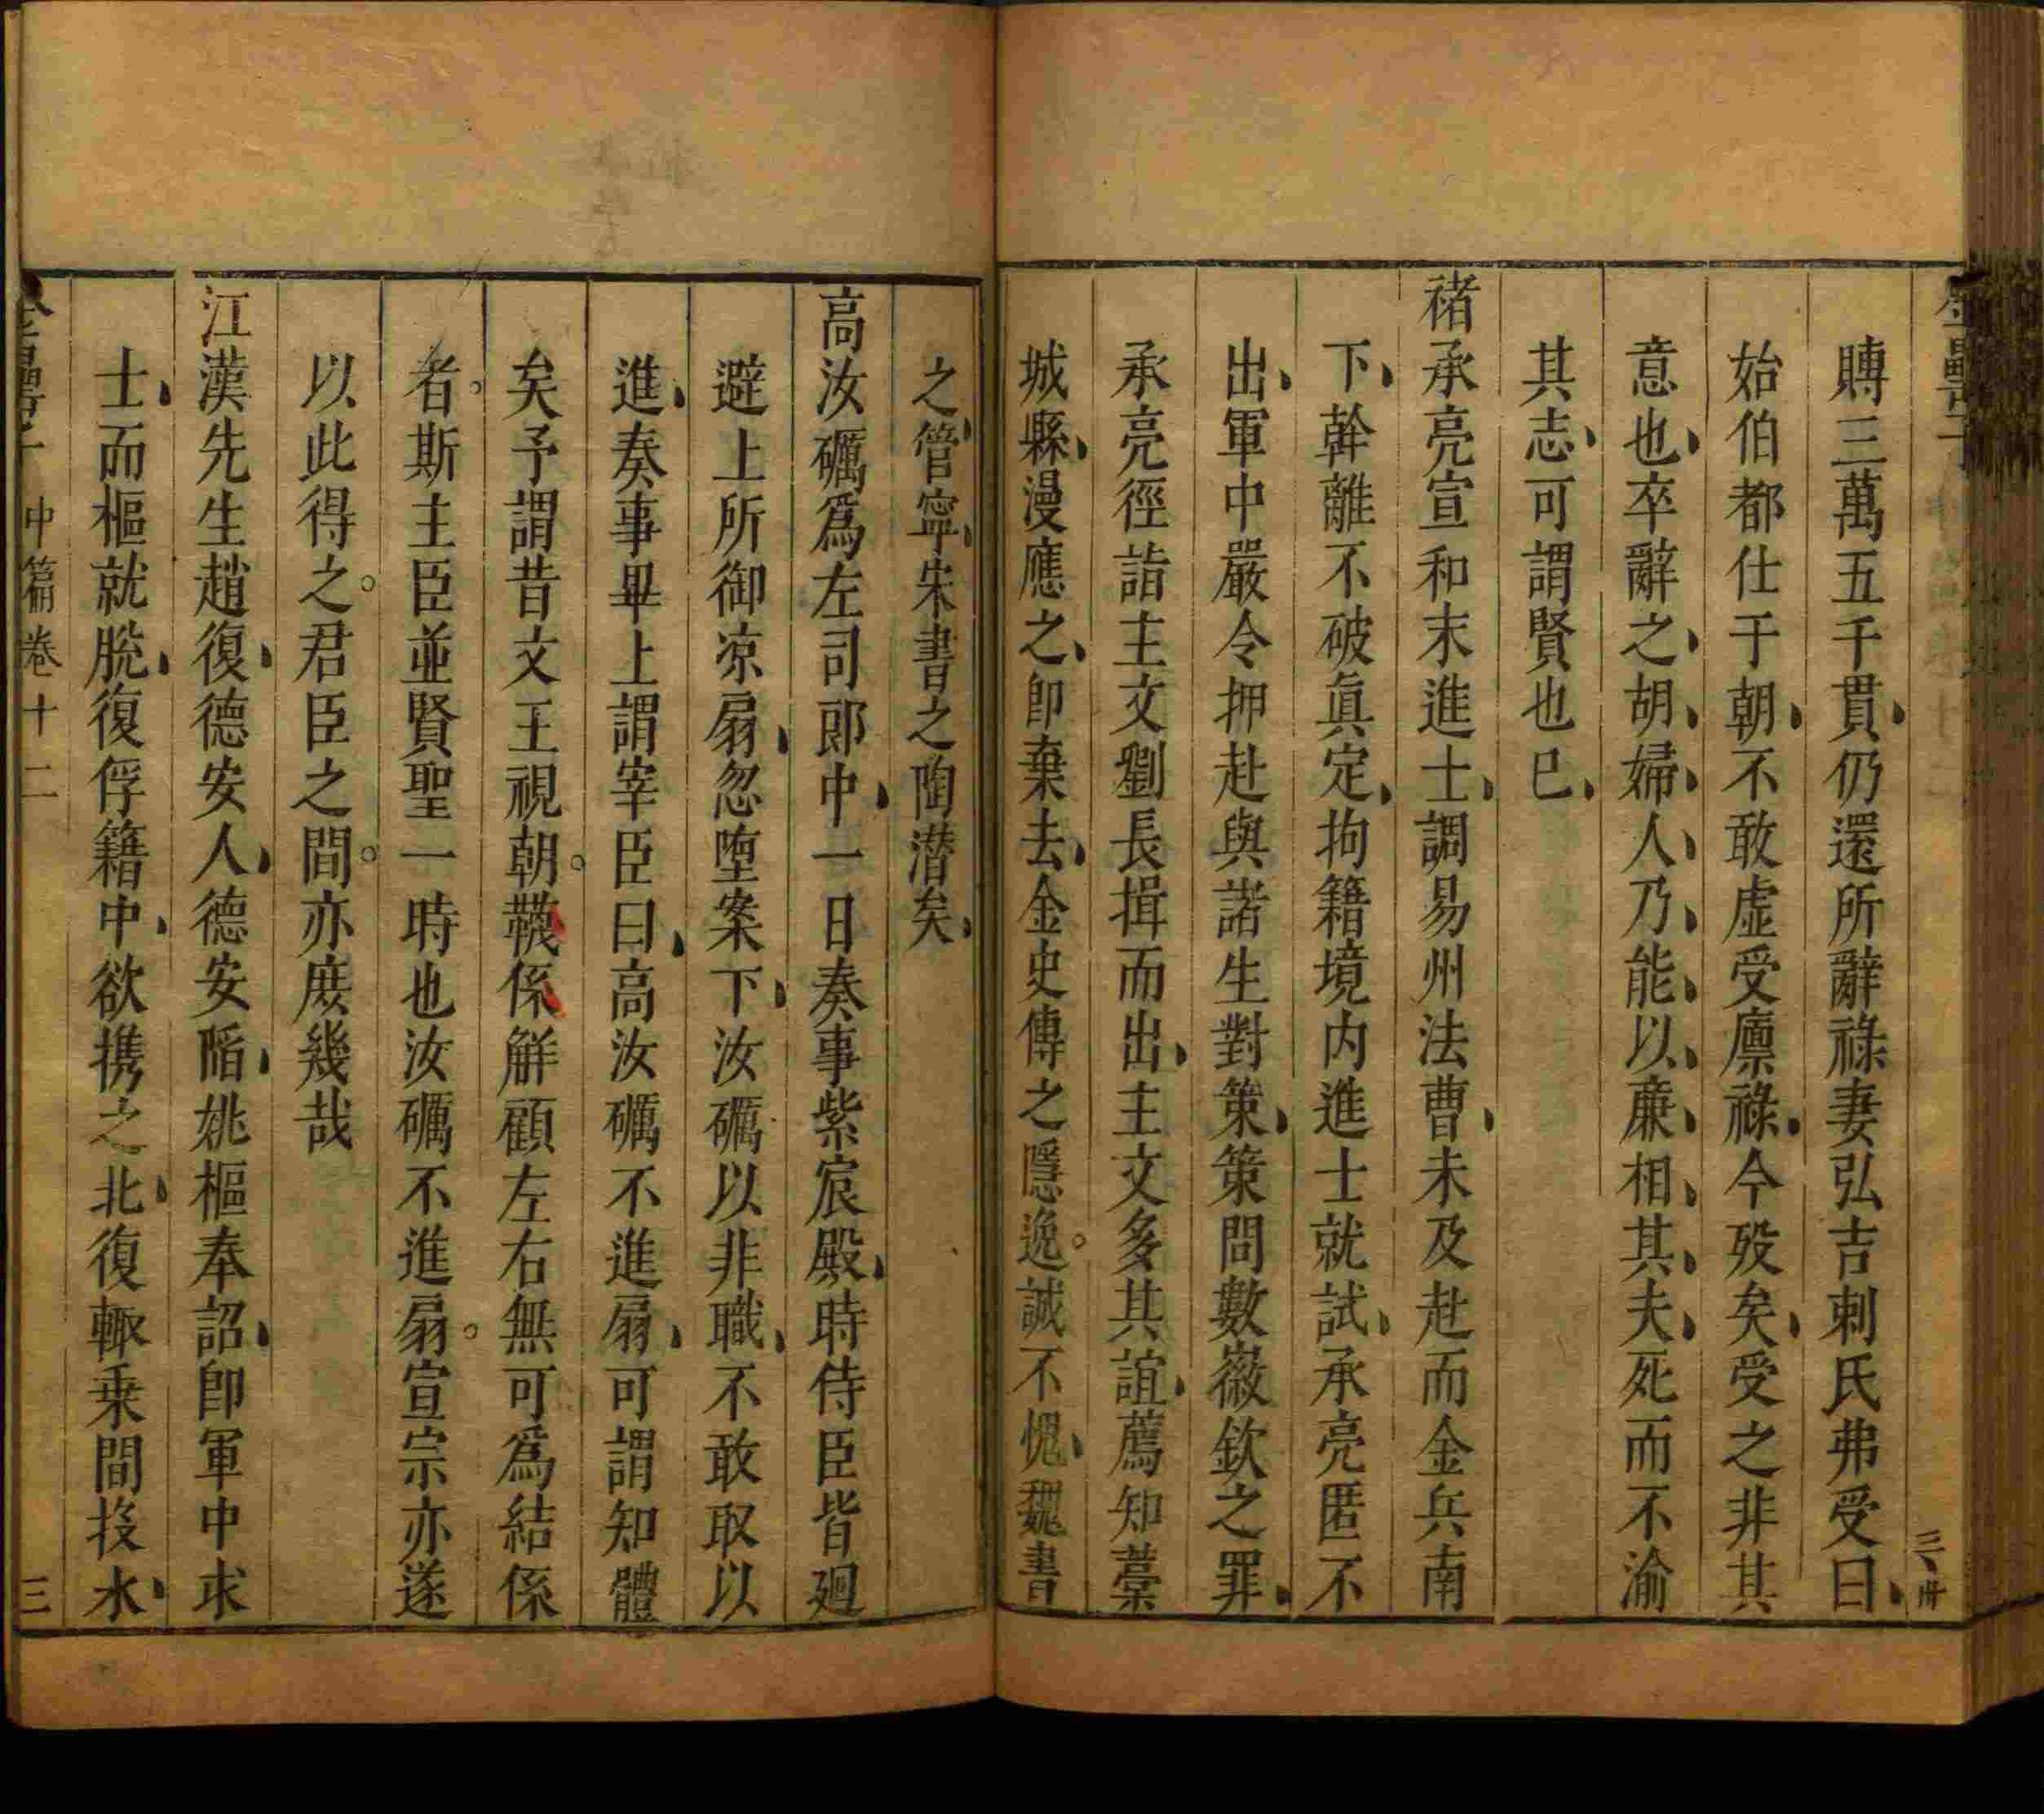 賻三萬五千貫仍還所辭祿妻弘吉剌氏弗受曰
始伯都仕于朝不敢虛受廪祿今歿矣受之非其
意也卒辭之胡婦人乃能以廉相其夫死而不渝
其志可謂賢也已
褚承亮宣和末進士調易州法曹未及赴而金兵南
下幹離不破眞定拘籍境内進士就試承亮匿不
出軍中嚴令押赴與諸生對策策問數徽欽之罪
承亮徑詣主文劉長揖而出主文多其誼薦知藁
城縣漫應之卽棄去金史傳之隱逸誠不愧魏書
之管寧宋書之陶潜矣
高汝礪爲左司郎中一日奏事紫宸殿時侍臣皆廻
避上所御凉扇忽墮案下汝礪以非職不敢取以
進奏事畢上謂宰臣曰高汝礪不進扇可謂知體
矣予謂昔文王視朝韈係解顧左右無可爲結係
者斯主臣並賢聖一時也汝礪不進扇宣宗亦遂
以此得之君臣之間亦庶幾哉
江漢先生趙復德安人德安陷姚樞奉詔卽軍中求
士而樞就脫復俘籍中欲携之北復輙乗間投水
中篇卷十二
三